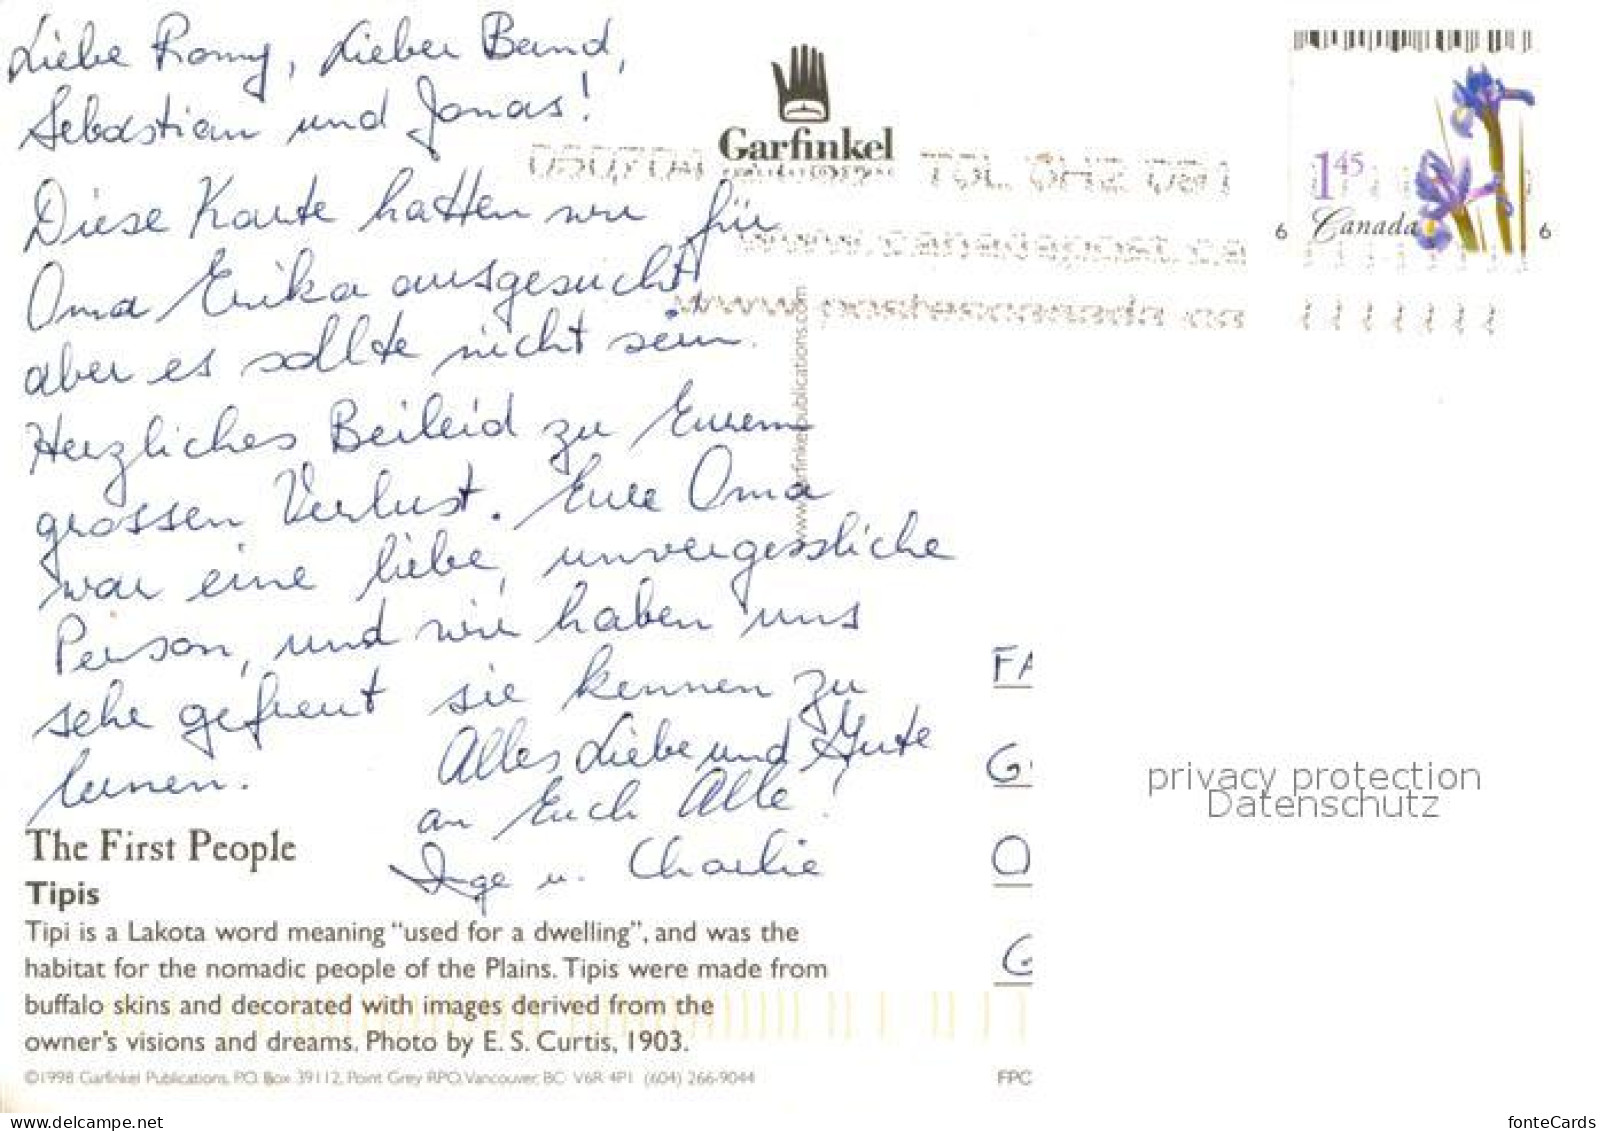 Liebe Romy, Lieber Bernd,
Sebastian und Jonas!
Diese Karte hatten wir für
Oma Erika ausgesucht
aber es sollte nicht sein.
Herzliches Beileid zu Eurem
grossen Verlust. Eure Oma
war eine liebe, unvergessliche
Person, und wir haben uns
sehr gefreut sie kennen zu
lernen.
Alles Liebe und Gute
an Euch Alle!
Inge u. Charlie
The First People
Tipis
Tipi is a Lakota word meaning “used for a dwelling”, and was the
habitat for the nomadic people of the Plains. Tipis were made from
buffalo skins and decorated with images derived from the
owner’s visions and dreams. Photo by E. S. Curtis, 1903.
©1998 Garfinkel Publications, P.O. Box 39112, Point Grey RPO, Vancouver, BC V6R 4P1 (604) 266-9044
Garfinkel
PUBLICATIONS
www.garfinkelpublications.com
www.postescanada.ca
1.45
Canada
6 6
FA
G
O
G
FPC
privacy protection
Datenschutz
www.delcampe.net
fonteCards